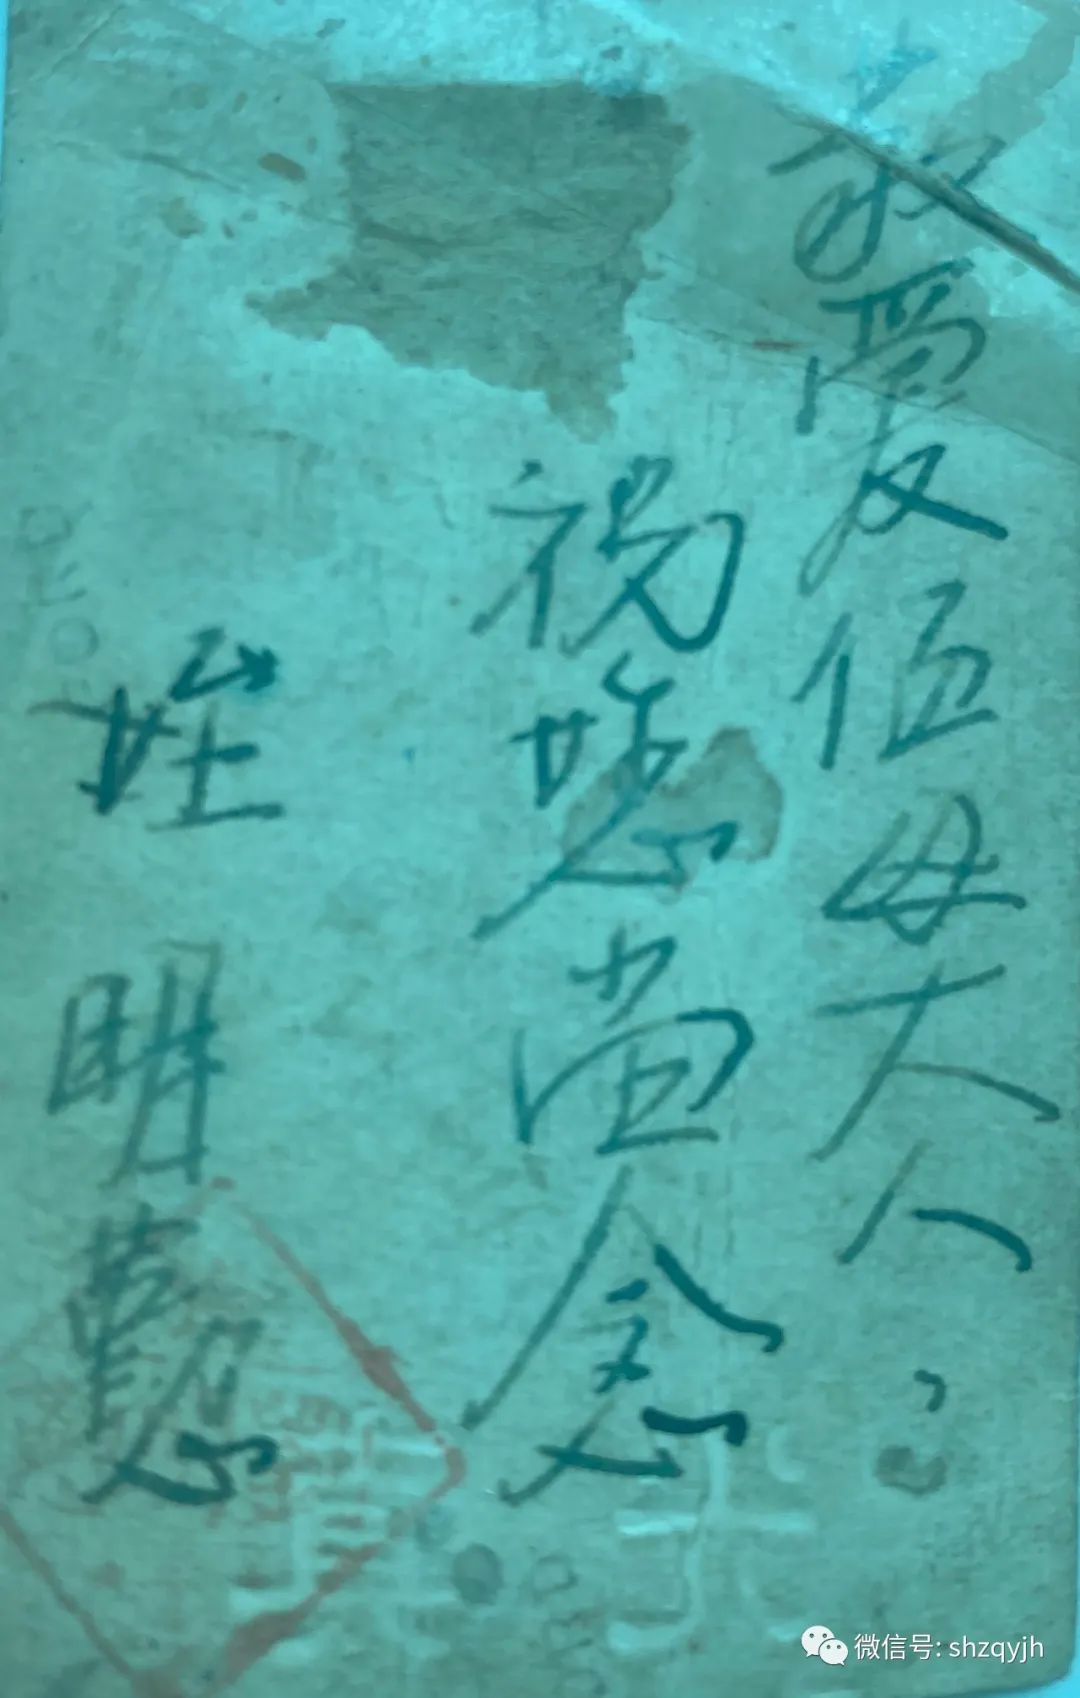 敬愛伍母大人：
祝您尚念
姪 明懃
微信号: shzqyjh